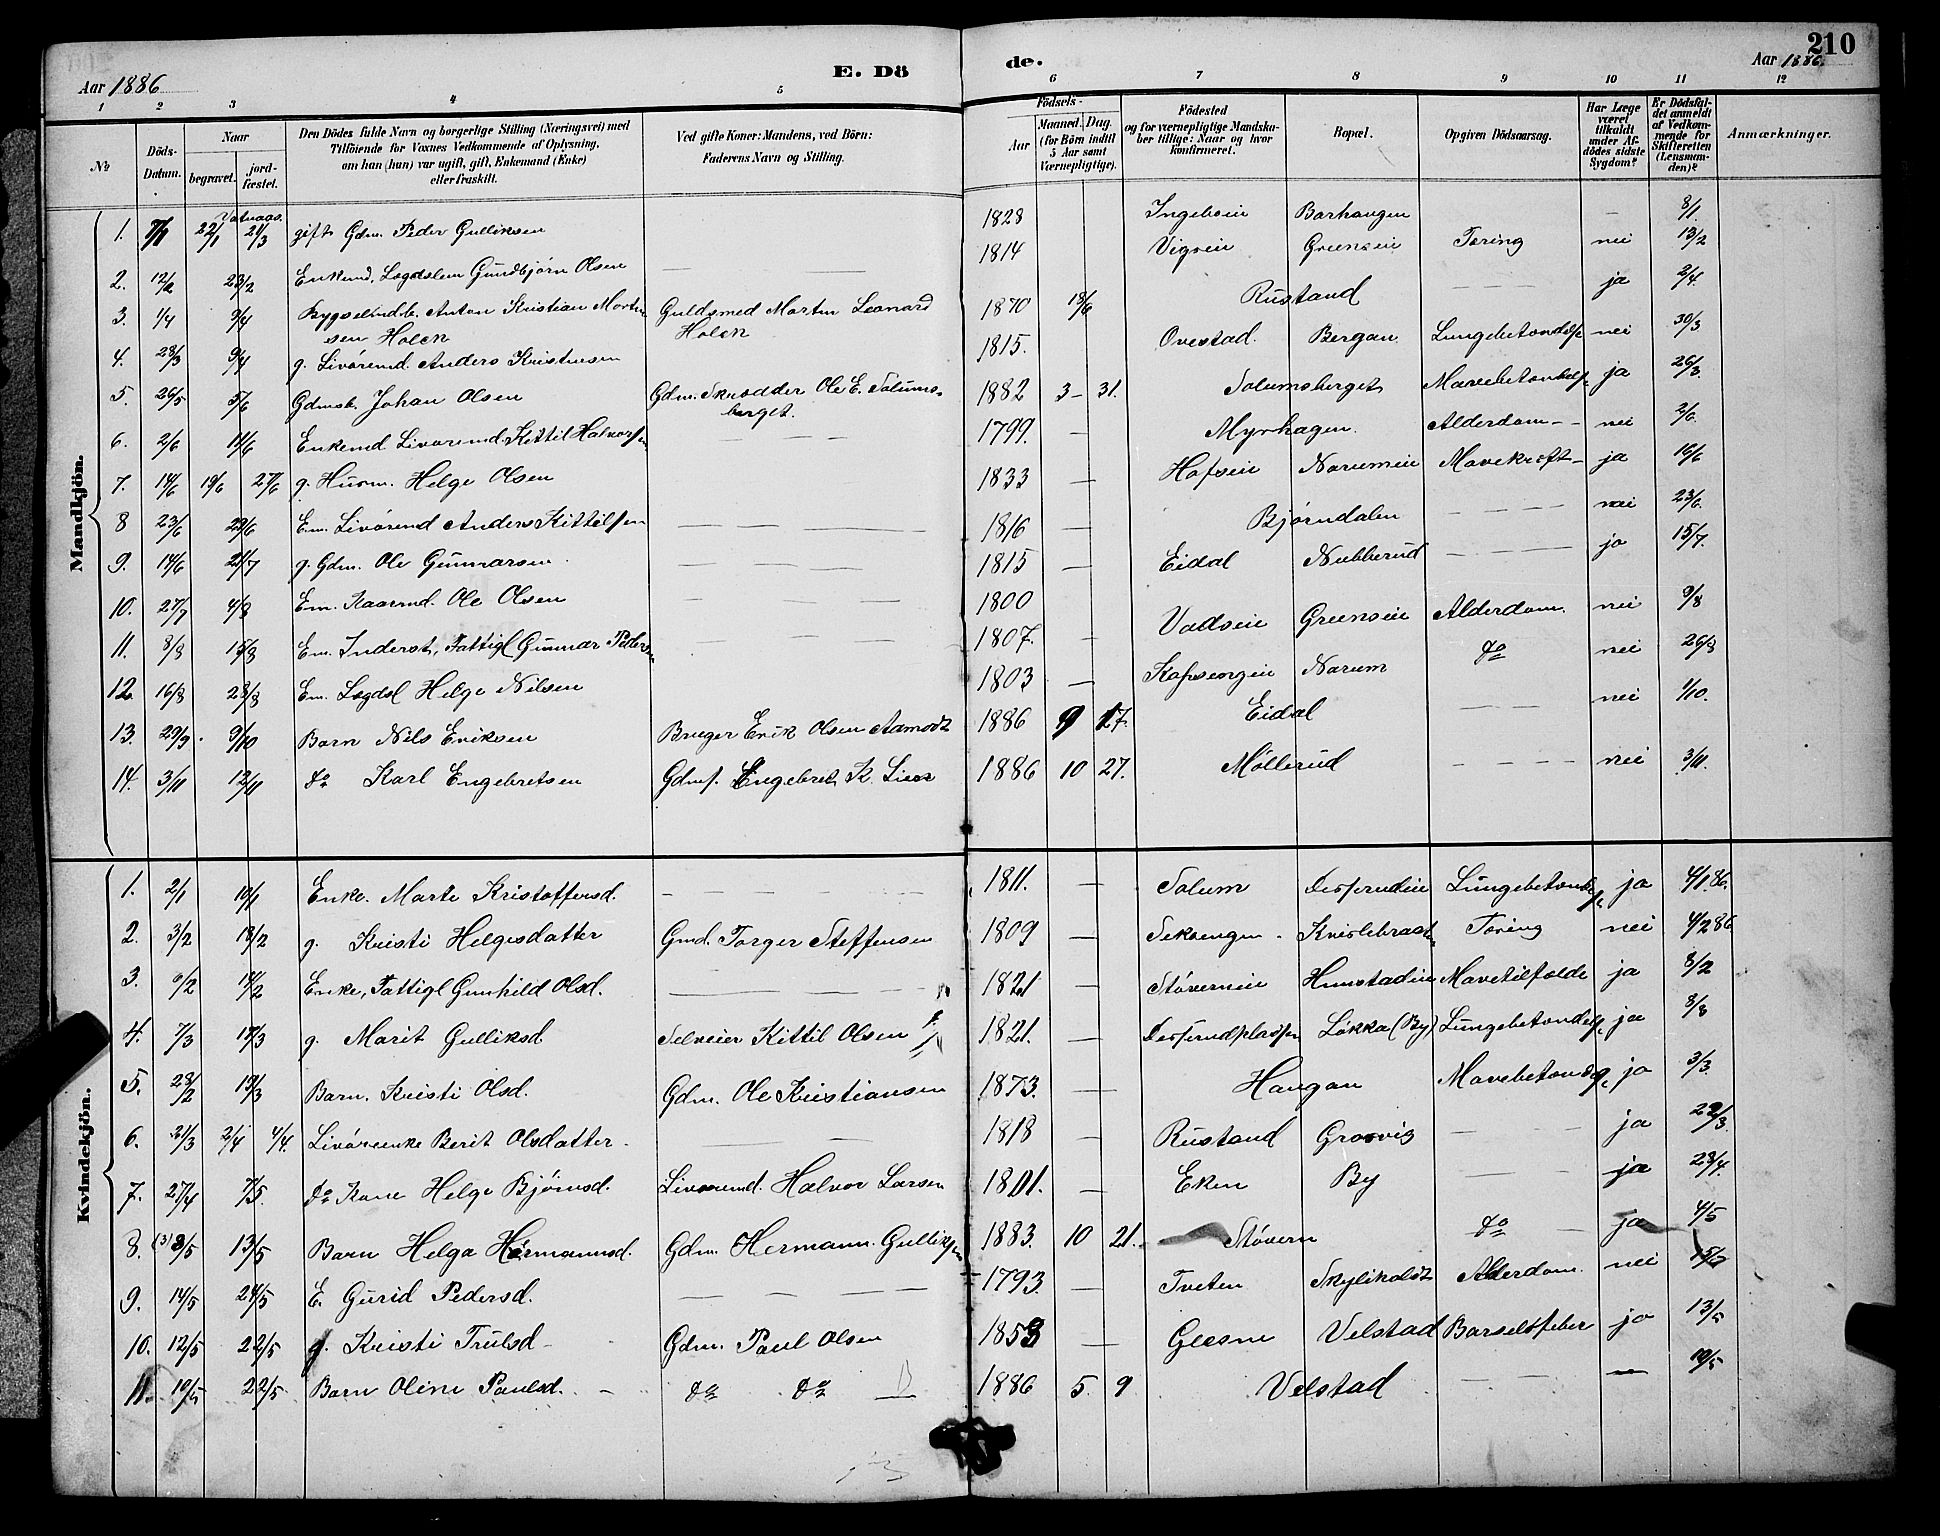 210
Aar 1886
E. Dö
de.
Aar 1886.
1 2 3 4 5 6 7 8 9 10 11 12
No
Döds-Datum.
Naar
begravet.
jordfæstet.
Den Dödes fulde Navn og borgerlige Stilling (Næringsvei) med
Tilföiende for Voxnes Vedkommende af Oplysning,
om han (hun) var ugift, gift, Enkemand (Enke)
eller fraskilt.
Ved gifte Koner: Mandens, ved Börn:
Faderens Navn og Stilling.
Födsels-
Aar
Maaned. Dag.
(for Börn indtil 5 Aar samt Værnepligtige).
Födested
og for værnepligtige Mandskaber tillige: Naar og hvor konfirmeret.
Bopæl.
Opgiven Dödsaarsag.
Har Læge været tilkaldt under Afdödes sidste Sygdom?
Er Dödsfaldet anmeldt af Vedkommende for Skifteretten (Lensmanden)?
Anmærkninger.
Mandkjön.
1. 7/1 22/1 21/3 gift Gdm. Peder Gulliksen 1828 Barhaugen 8/1.
2. 12/2 23/2 Enkemd. Lægdslem Gundbjørn Olsen 1814 Vigrein Greensein Tæring nei 13/2
3. 1/4 9/4 Anton Kristian Morten Guldsmed Morten Leonard 1870 18/6 Rustand ja 2/4.
sen Holen Holen
4. 28/3 9/4 g. Livöremd. Anders Kristensen 1815. Ovestad. Bergan. Lungebetændelse nei 30/3
5. 26/5 5/6 Gdmsb. Johan Olsen Gdm. Skrædder Ole E. Solums- 1882 3 31. Solumsberget Mavebetændelse ja 26/3.
berget.
6. 2/6 11/6 Enkemd Livöremd. Kittil Halvorsen 1799. Myrhagen. Alderdom nei 2/6.
7. 14/6 19/6 27/6 g. Husm. Helge Olsen 1833 Hofsein Narumein Mavekræft ja 16/6
8 23/6 29/6 Em. Livöremd Anders Kittilsen 1816 Bjørndalen nei 23/6.
9. 14/6 21/7 g. Gdm. Ole Gunnarsen 1815 Eidal Nubberud ja 15/7.
10. 27/7 4/8 Em. Kaarmd. Ole Olsen 1800 Vadsein Greensein Alderdom. nei 9/8
11. 8/8 15/8 Em. Inderst, Fattigl Gunnar Pedersen 1807. do nei 26/8
12. 16/8 28/8 Em. Lægdsl Helge Nilsen 1803 Narum nei 1/10.
13. 29/9. 9/10 Barn Nils Eriksen Bruger Erik Olsen Aamodt 1886 9 17. Eidal
14. 3/11 12/11 do Karl Engebretsen Gdms. Engebret K. Lien 1886 10 27. Møllerud nei 3/11.
Kvindekjön.
1. 2/1 10/1 Enke. Marte Kristoffersd. 1811. Solum Lungebetændelse ja 4/1 86.
2. 3/2 13/2 g. Kristi Helgesdatter Gmd. Torger Steffensen 1809 Tæring nei 4/2 86
3. 6/2 14/2 Enke, Fattigl Gunhild Olsd. 1821 Støvernein Hunstadein Mavetilfælde ja 8/2
4. 7/3 17/3 g. Marit Gulliksd Selveier Kittil Olsen 1821. Løkka (By) Lungebetændelse ja 8/3
5. 28/2 13/3 Barn. Kristi Olsd. Gdm. Ole Kristiansen 1873. Haugan Mavebetændelse ja 3/3.
6. 21/3 2/4 4/4. Livöreenke Berit Olsdatter 1818 Rustand Grosvig ja 22/3.
7. 27/4 7/5. do Kone Helge Bjørnsd. Livöremd. Halvor Larsen 1801. Eken By ja 28/4.
8. (3) 8/5 13/5 Barn Helga Hermannsd. Gdm. Hermann Gulliksen 1883. 10 21. Støvern do ja 4/5
9. 14/5 24/5 E. Gurid Pedersd. 1793. Tveten Skylikoldt Alderdom. nei 15/5
10. 12/5 22/5 g. Kristi Trulsd Gdm. Paul Olsen 1853 Glesne Velstad Barselsfeber ja 13/5
11. 10/5 22/5 Barn Oline Paulsd. do do 1886 5 9 Velstad 10/5